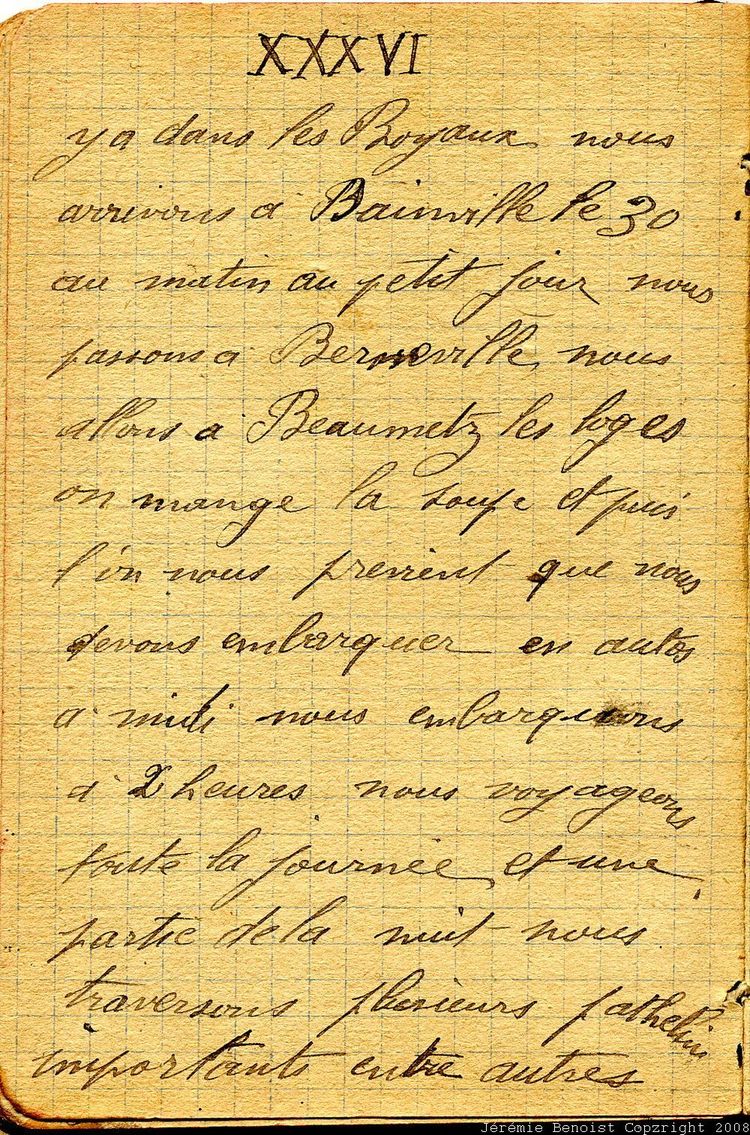 XXXVI
y a dans les Boyaux nous
arrivons a Bainville le 30
au matin au petit jour nous
passons a Berneville, nous
allons a Beaumetz les loges
on mange la soupe et puis
l'on nous previent que nous
devons embarquer en autos
a midi nous embarquons
a 2 heures nous voyageons
toute la journée et une
partie de la nuit nous
traversons plusieurs pathelins
importants entre autres
Jérémie Benoist Copzright 2008